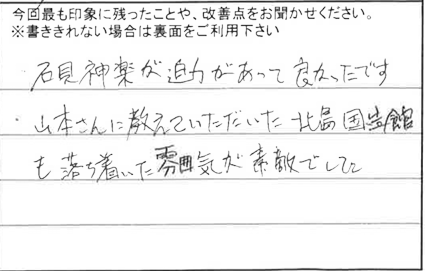 今回最も印象に残ったことや、改善点をお聞かせください。
※書ききれない場合は裏面をご利用下さい
石見神楽が迫力があって良かったです
・山本さんに教えていただいた北島国造館
も落ち着いた雰囲気が素敵でした